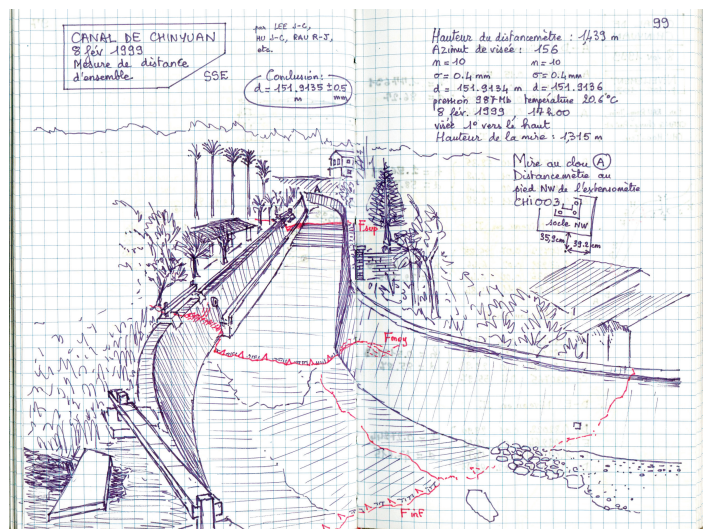 CANAL DE CHINYUAN
8 fév 1999
Mesure de distance
d'ensemble
SSE
par LEE J-C,
HU J-C, RAU R-J,
etc.
Conclusion:
d = 151.9135 ± 0.5
m mm
99
Hauteur du distancemètre : 1,439 m
Azimut de visée : 156
n = 10 n = 10
σ = 0.4 mm σ = 0.4 mm
d = 151.9134 m d = 151.9136
pression 987 Mb température 20.6°C
8 fév. 1999 17h00
visée 1° vers le haut
Hauteur de la mire : 1,315 m
Mire au clou A
Distancemètre au
pied NW de l'extensomètre
CHI003
socle NW
35,9cm
39.2 cm
Fsup
Fmoy
Finf